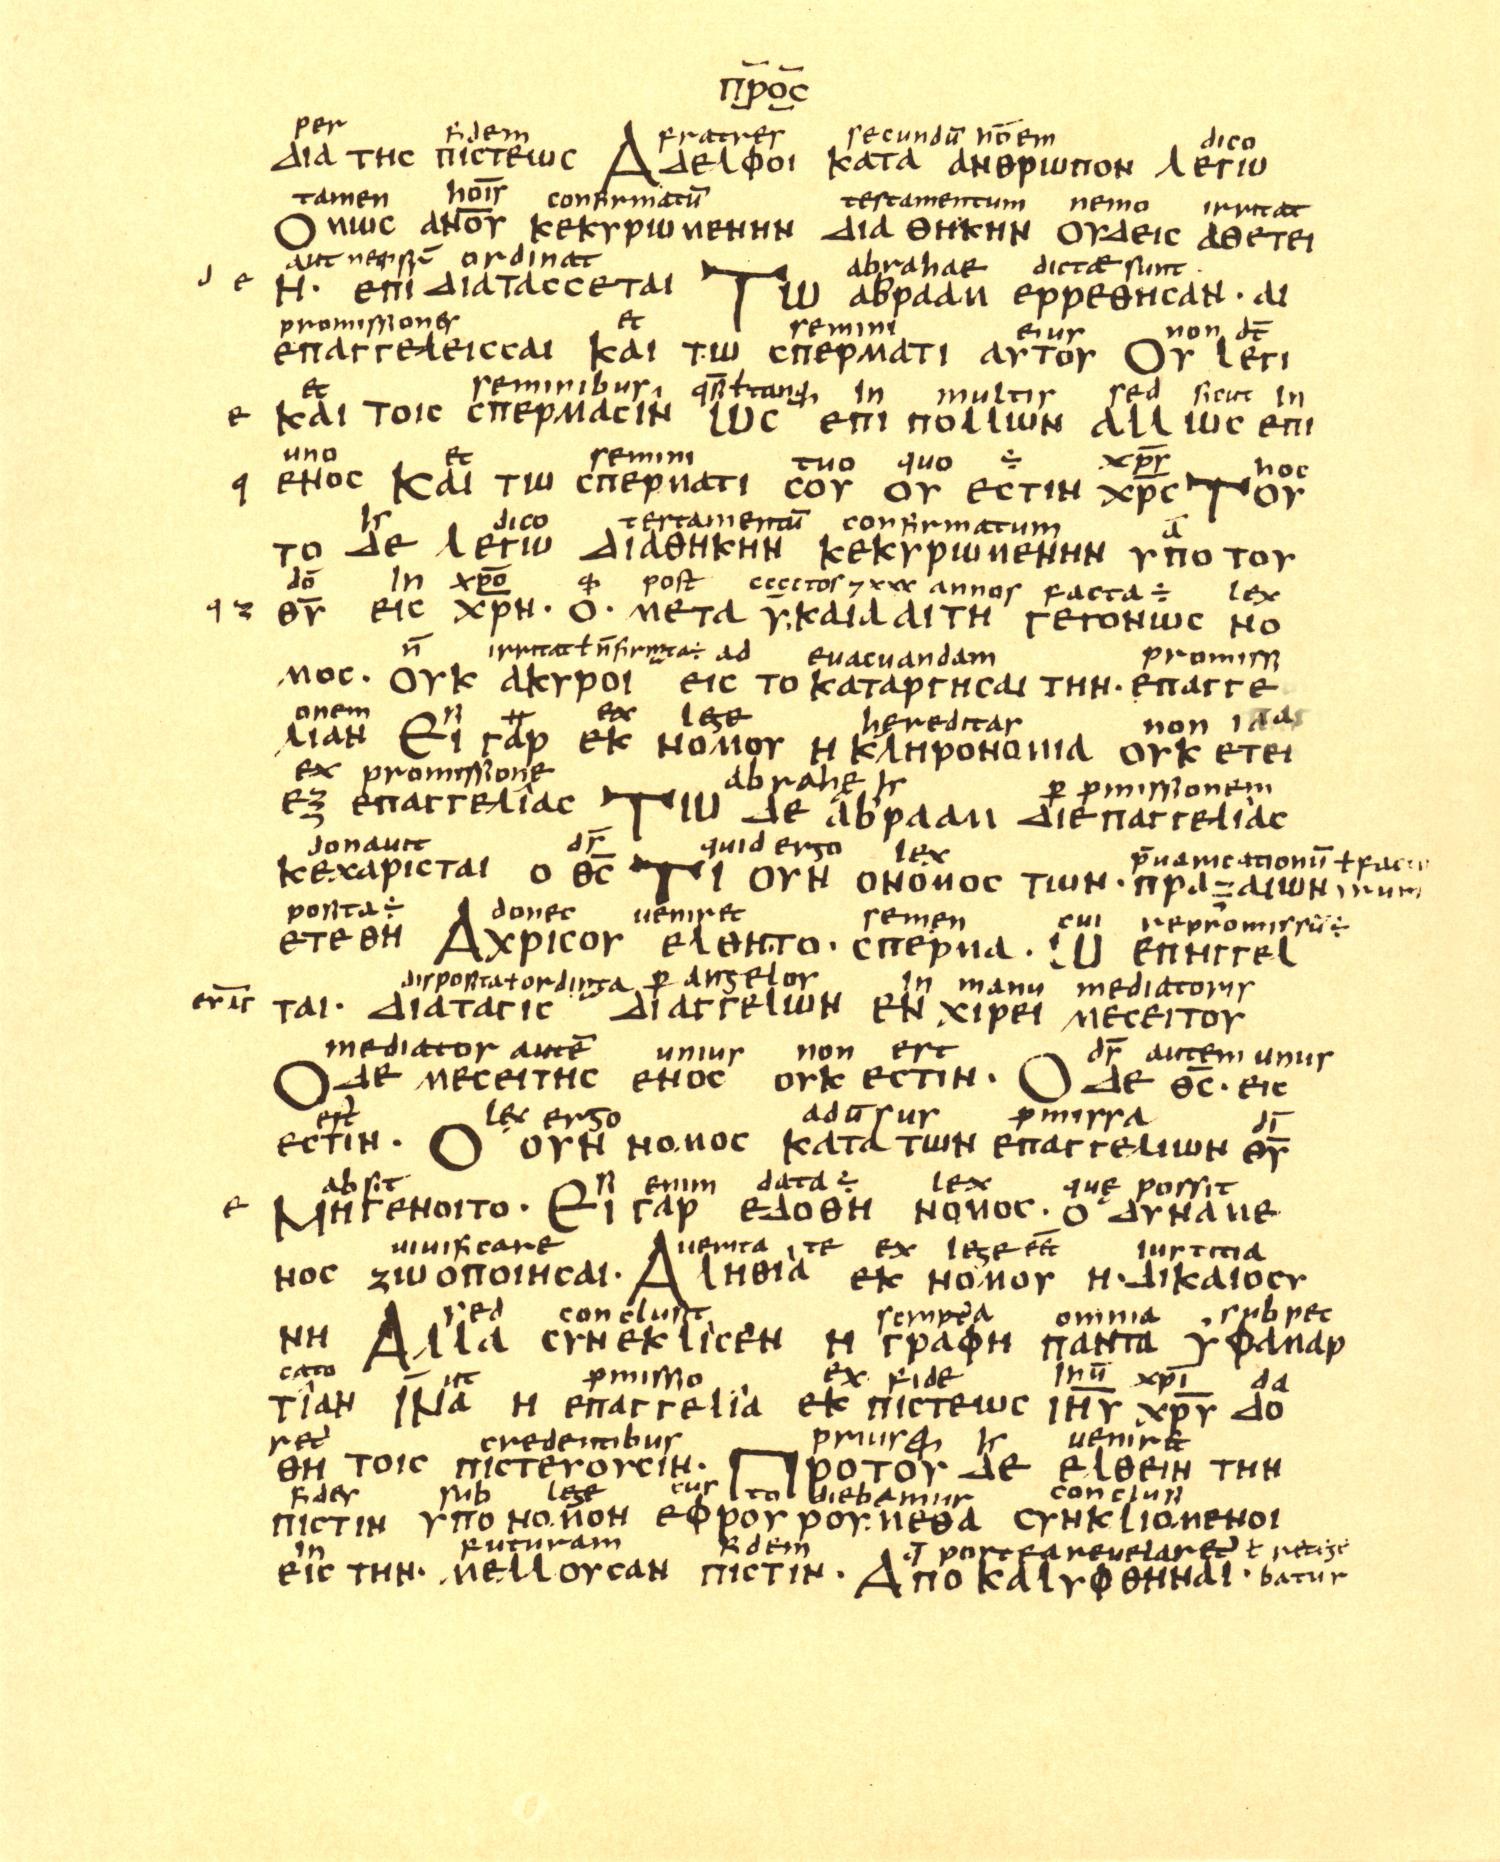 προς
per fidem fratres secundū hōem dico
δια της πιστεως Αδελφοι κατα ανθρωπον λεγω
tamen hoīs confirmatū testamentum nemo irritat
Ομως ανου κεκυρωμενην διαθηκην ουδεις αθετει
aut ordinat abrahae dictae sunt
η· επιδιατασσεται Τω αβρααμ ερρεθησαν· αι
promissiones et semini eius non dc̄
επαγγελεισσαι και τω σπερματι αυτου Ου λεγι
et seminibus in multis sed sicut in
και τοις σπερμασιν Ως επι πολλων αλλ ως επι
uno et semini tuo quo ÷ xp̄s hoc
ενος Και τω σπερματι σου ου εστιν χρ̄ς Του
dico testamentū confirmatum a
το δε λεγω διαθηκην κεκυρωμενην υπο του
dō in xp̄o post annos facta ÷ lex
θῡ εις χρ̄ν· ο· μετα ῡ· και λ αιτη γεγονως νο
n̄ ad euacuandam promissi
μος· ουκ ακυροι εις το καταργησαι την· επαγγε
onem si ex lege hereditas non
λιαν Ει γαρ εκ νομου η κληρονομια ουκ ετει
ex promissione abrahe p pmissionem
εξ επαγγελιας Τω δε αβρααμ διεπαγγελιας
donauit ds̄ quid ergo lex
κεχαρισται ο θς̄ Τι ουν ονομος των· πραξαιων
posita ÷ donec ueniret semen cui repromissū ÷
ετεθη Αχρισου ελθη·το· σπερμα· Ω επηγγελ
p angelos in manu mediatoris
ται· διαταγις διαγγελων εν χιρει μεσειτου
mediator autē unius non est ds̄ autem unus
Οδε μεσειτης ενος ουκ εστιν· Ο δε θς̄· εις
est lex ergo adūsus pmissa dī
εστιν· Ο ουν νομος κατα των επαγγελιων θῡ
absit si enim data ÷ lex que possit
Μη γενοιτο· Ει γαρ εδοθη νομος· ο δυναμε
uiuificare ex lege iustitia
νος ζωοποιησαι· Αληθια εκ νομου η· δικαιοσυ
sed conclusit omnia sub pec
νη Αλλα συνεκλισεν η γραφη παντα υφαμαρ
cato ut pmissio ex fide ihū xpī da
τιαν Ινα η επαγγελια εκ πιστεως ιηῡ χρῡ δο
ret credentibus ueniret
θη τοις πιστευουσιν· Προτου δε ελθειν την
fides sub lege custodiebamur conclusi
πιστιν υπο νομον εφρουρουμεθα συνκλιομενοι
in futuram fidem
εις την· μελλουσαν πιστιν· Αποκαλυφθηναι· batur